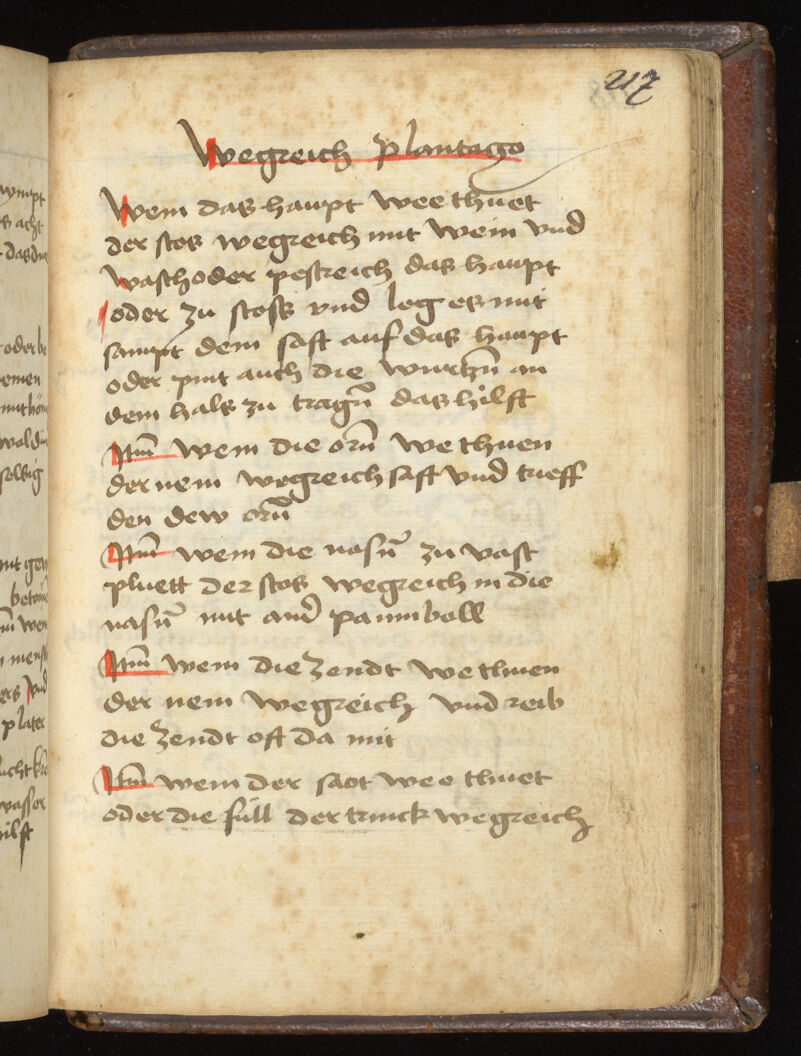 217
Wegreich plantago
Wem das haupt wee thuet
der stos wegreich mit wein vnd
wasch oder pestreich das haupt
oder zu stoss vnd leg es mit
sampt dem saft auf das haupt
oder pint auch die wurtzn̄ an
dem hals zu tragn̄ das hilft
Itm̄ wem die orn̄ we thuen
der nem wegreich saft vnd trieff
den dew orn̄
Itm̄ wem die nasn̄ zu vast
pluett der stos wegreich in die
nasn̄ mit paumboll
Itm̄ wem die zendt we thuen
der nem wegreich vnd reib
die zendt oft da mit
Itm̄ wem der saot wee thuet
oder die füll der trinck wegreich
ympt
acht
das
oder be
emen
mit
selbig
mit
wem
vnd
plater
wasser
hilft